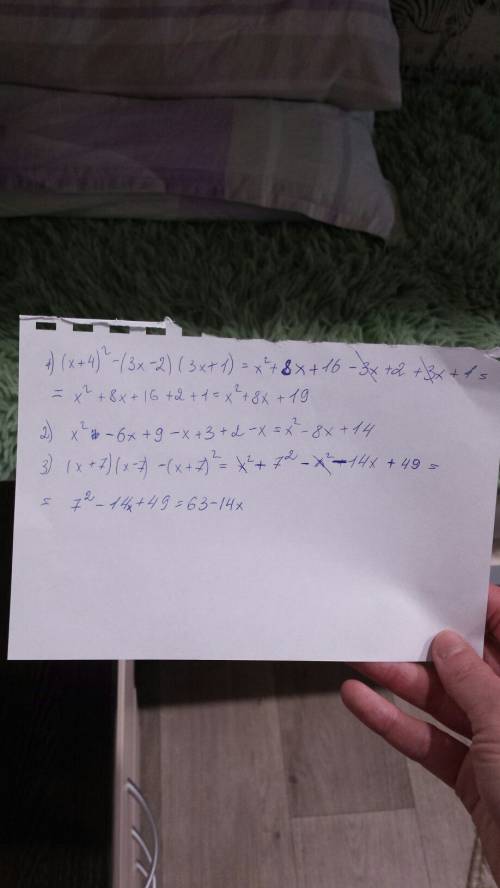 1) (x+4)² -(3x-2)(3x+1) = x²+8x+16 -3x+2+3x+1=
= x²+8x+16+2+1=x²+8x+19
2) x² -6x+9-x+3+2-x=x²-8x+14
3) (x+7)(x-7)-(x+7)²= x²+7²-x²-14x+49=
= 7²-14x+49=63-14x